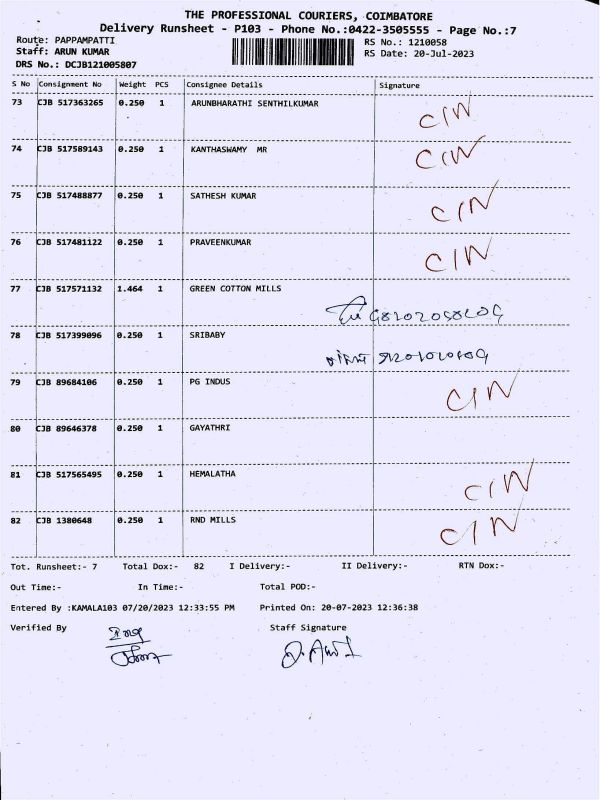 THE PROFESSIONAL COURIERS, COIMBATORE
Delivery Runsheet - P103 - Phone No.:0422-3505555 - Page No.:7
Route: PAPPAMPATTI RS No.: 1210058
Staff: ARUN KUMAR RS Date: 20-Jul-2023
DRS No.: DCJB121005807
S No Consignment No Weight PCS Consignee Details Signature
73 CJB 517363265 0.250 1 ARUNBHARATHI SENTHILKUMAR C/N
74 CJB 517589143 0.250 1 KANTHASWAMY MR C/N
75 CJB 517488877 0.250 1 SATHESH KUMAR C/N
76 CJB 517481122 0.250 1 PRAVEENKUMAR C/N
77 CJB 517571132 1.464 1 GREEN COTTON MILLS
78 CJB 517399096 0.250 1 SRIBABY
79 CJB 89684106 0.250 1 PG INDUS C/N
80 CJB 89646378 0.250 1 GAYATHRI
81 CJB 517565495 0.250 1 HEMALATHA C/N
82 CJB 1380648 0.250 1 RND MILLS C/N
Tot. Runsheet:- 7 Total Dox:- 82 I Delivery:- II Delivery:- RTN Dox:-
Out Time:- In Time:- Total POD:-
Entered By :KAMALA103 07/20/2023 12:33:55 PM Printed On: 20-07-2023 12:36:38
Verified By Staff Signature